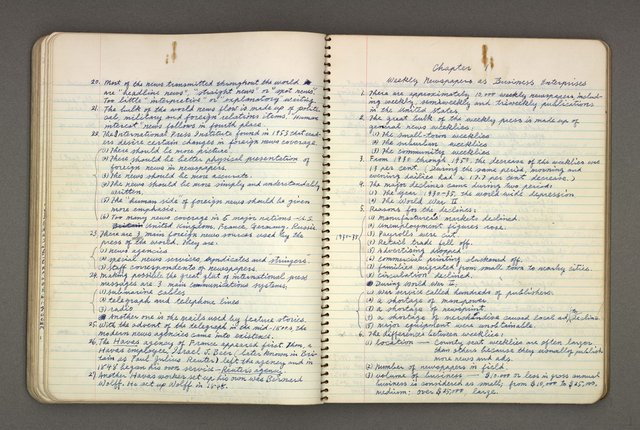 20. Most of the news transmitted throughout the world
are "headline news", "straight news" or "spot news".
Too little "interpretive" or "explanatory writing.
21. The bulk of the world news flow is made up of politi-
cal, military and foreign relations items. "Human
interest" news follows in fourth place.
22. The International Press Institute found in 1953 that read-
ers desire certain changes in foreign news coverage.
(1) There should be more pictures.
(2) There should be better physical presentation of
foreign news in newspapers.
(3) The news should be more accurate.
(4) The news should be more simply and understandably
written.
(5) The "human side of foreign news should be given
more emphasis.
(6) Too many news coverage in 5 major nations - U.S.
United Kingdom, France, Germany, Russia.
23. There are 3 main foreign news sources used by the
press of the world. They are:
(1) news agencies
(2) special news services, syndicates and stringers.
(3) Staff correspondents of newspapers.
24. Making possible the great glut of international press
messages are 3 main communications systems.
(1) submarine cables
(2) telegraph and telephone lines
(3) radio
Another one is the mails used by feature stories.
25. With the advent of the telegraph in the mid-1800s, the
modern news agencies came into existence.
26. The Havas agency of France appeared first. Then, a
Havas employee, Israel J. Beer (later known in Bri-
tain as Paul Julius Reuter) left the agency and in
1848 began his own service - Reuters agency.
27. Another Havas worker set up his own was Bernard
Wolff. He set up Wolff in 1848.
Chapter
Weekly Newspapers as Business Enterprises
1. There are approximately 10,000 weekly newspapers, includ-
ing weekly, semiweekly and triweekly publications
in the United States.
2. The great bulk of the weekly press is made up of
general news weeklies.
(1) The small-town weeklies
(2) The suburban weeklies
(3) The community weeklies
3. From 1930 through 1950 the decrease of the weeklies was
19 per cent. (During the same period, morning and
evening dailies had a 17.7 per cent decrease.)
4. The major declines came during two periods:
(1) The year 1930-35, the world wide depression
(2) The World War II
5. Reasons for the declines:
(1) manufacturers' markets declined.
(2) Unemployment figures rose.
1930-35 (3) Payrolls were cut.
(4) Retail trade fell off.
(5) Advertising dropped
(6) commercial printing slackened off.
(7) families migrated from small town to nearby cities.
(8) circulation declined.
During World War II:
(1) War service called hundreds of publishers.
(2) a shortage of manpower.
(3) a shortage of newsprint.
(4) a shortage of merchandise caused local adv. decline
(5) major equipment were unobtainable.
6. The difference between weeklies:
(1) Location — County seat weeklies are often larger
than others because they usually publish
more news and ads.
(2) Number of newspapers in field.
(3) Volume of business — $10,000 or less in gross annual
business is considered as small; from $10,000 to $25,000,
medium; over $25,000, large.